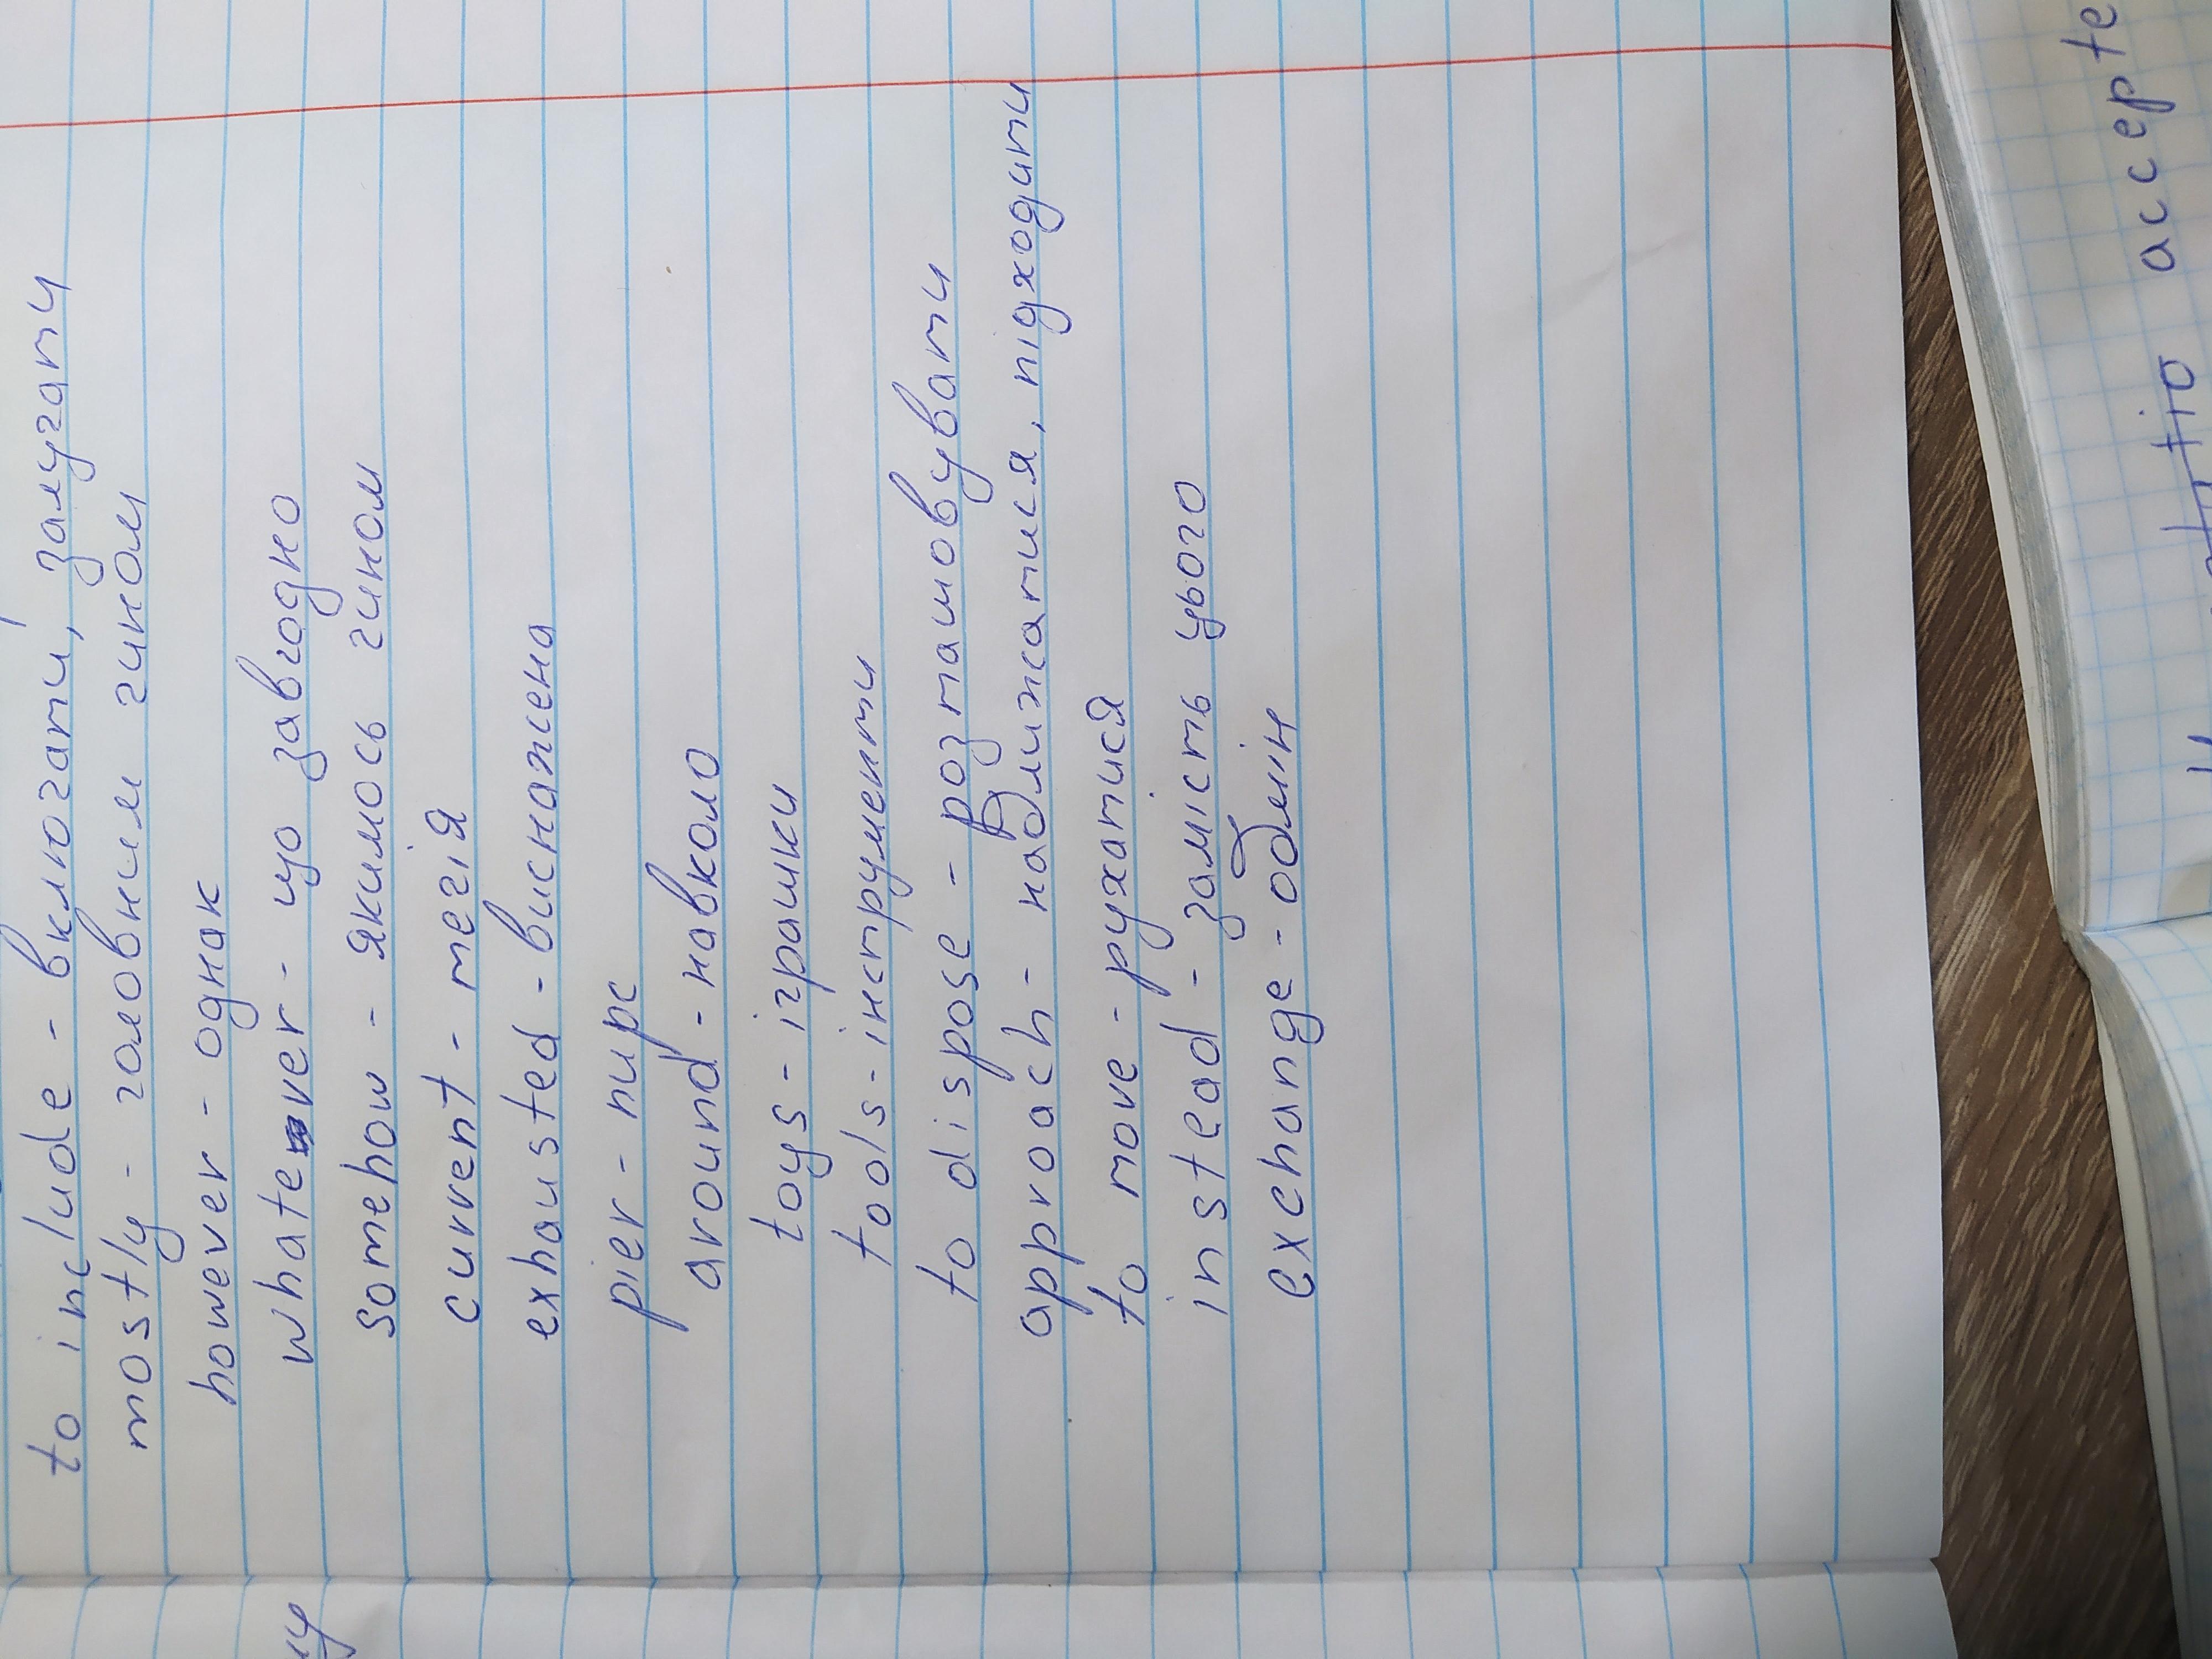 to include - включати, залучати
mostly - головним чином
however - однак
whatever - що завгодно
somehow - якимось чином
current - течія
exhausted - виснажена
pier - пирс
around - навколо
toys - іграшки
tools - інструменти
to dispose - розташовувати
approach - наближатися, підходити
to move - рухатися
instead - замість цього
exchange - обмін
accepte